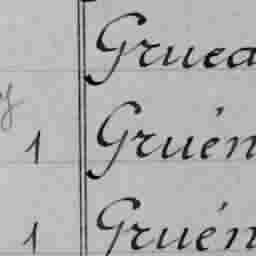 Grued
y
1 Gruén
1 Gruén